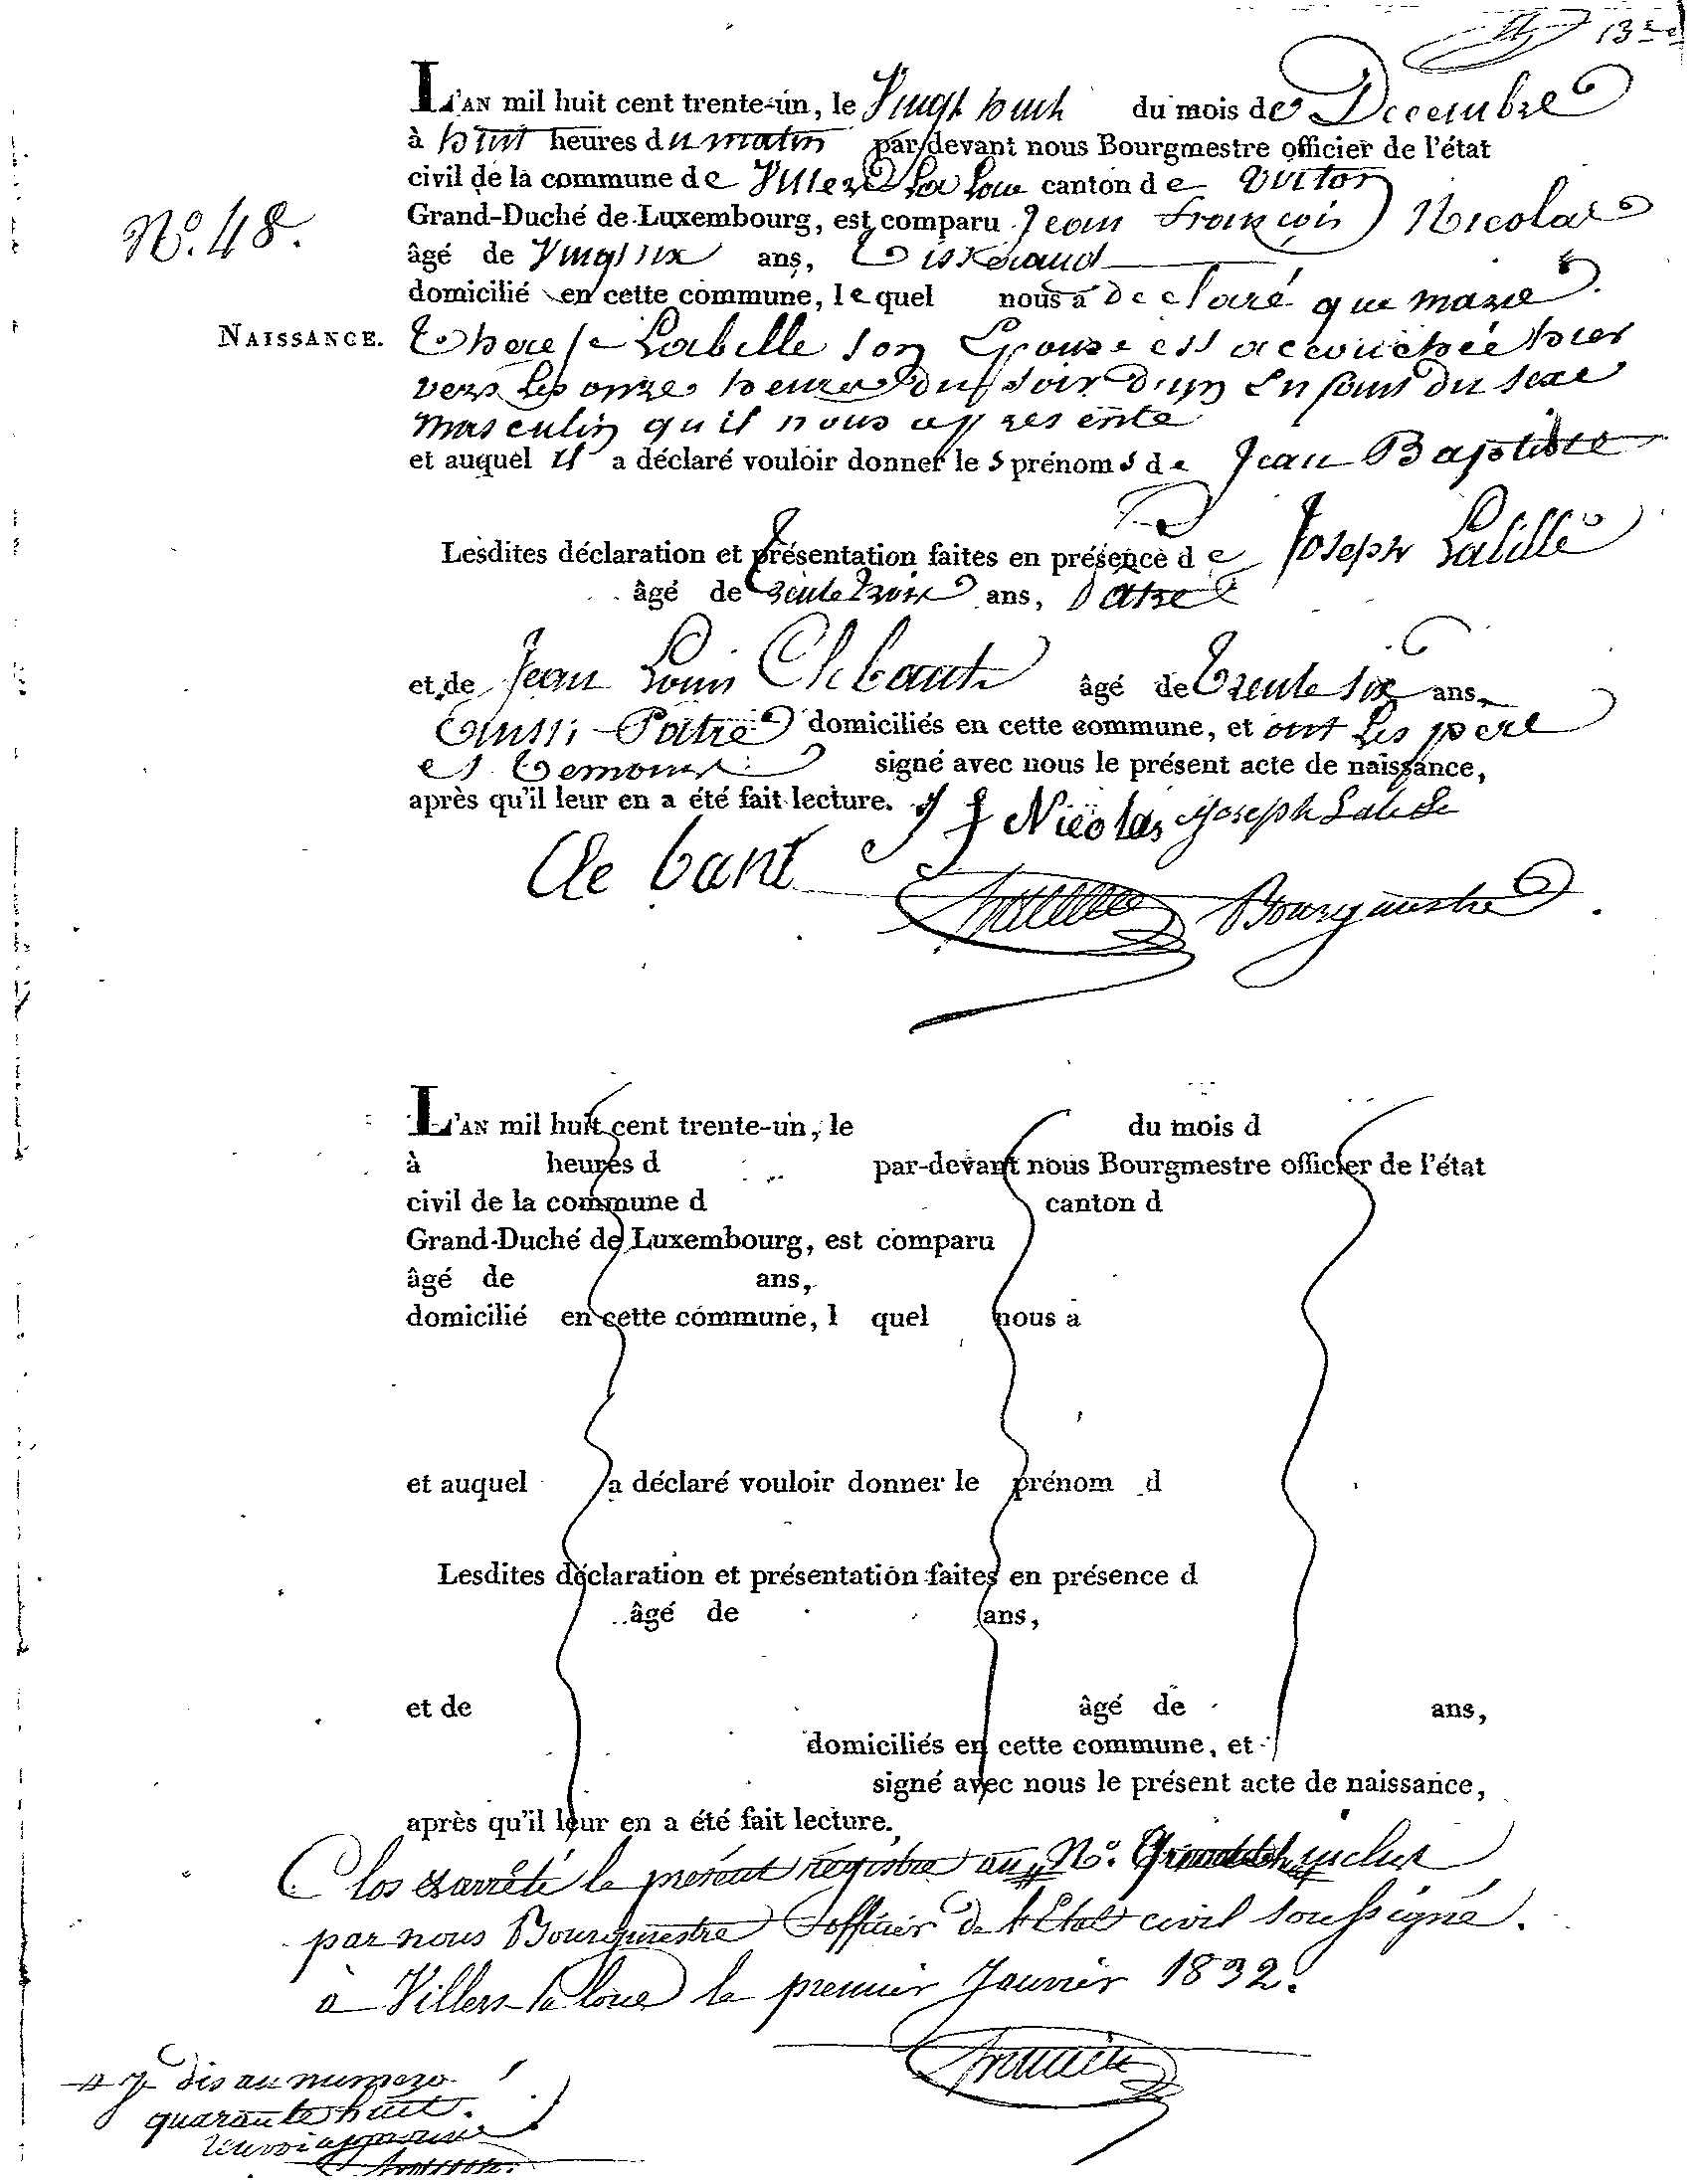 13
L'AN mil huit cent trente-un, le Vingt huit du mois de Decembre
à huit heures du matin par-devant nous Bourgmestre officier de l'état
civil de la commune de Villers la loue canton de Virton
N.o 48.
Grand-Duché de Luxembourg, est comparu Jean François Nicolas
âgé de Vingt six ans, Tisserand
domicilié en cette commune, le quel nous a declaré que marie
NAISSANCE.
Therese Labelle son Epouse est accouchée hier
vers les onze heures du soir d'un Enfant du sexe
masculin qu'il nous apresente
et auquel il a déclaré vouloir donner les prénoms de Jean Baptiste
Lesdites déclaration et présentation faites en présence de Joseph Labille
âgé de Trente Trois ans, Pâtre
et de Jean Louis Clebant âgé de Trente six ans,
aussi Pâtre domiciliés en cette commune, et ont les pere
et temoins signé avec nous le présent acte de naissance,
après qu'il leur en a été fait lecture. J f Nicolas Joseph Labille
Cle bant
Bourgmestre
L'AN mil huit cent trente-un, le du mois d
à heures d par-devant nous Bourgmestre officier de l'état
civil de la commune d canton d
Grand-Duché de Luxembourg, est comparu
âgé de ans,
domicilié en cette commune, l quel nous a
et auquel a déclaré vouloir donner le prénom d
Lesdites déclaration et présentation faites en présence d
âgé de ans,
et de âgé de ans,
domiciliés en cette commune, et
signé avec nous le présent acte de naissance,
après qu'il leur en a été fait lecture.
Clos et arrêté le présent registre au N.o inclus
par nous Bourgmestre officier de l'Etat civil soussigné.
à Villers-la loue le premier Janvier 1832.
dis au numero
quarante huit.
renvoi approuvé